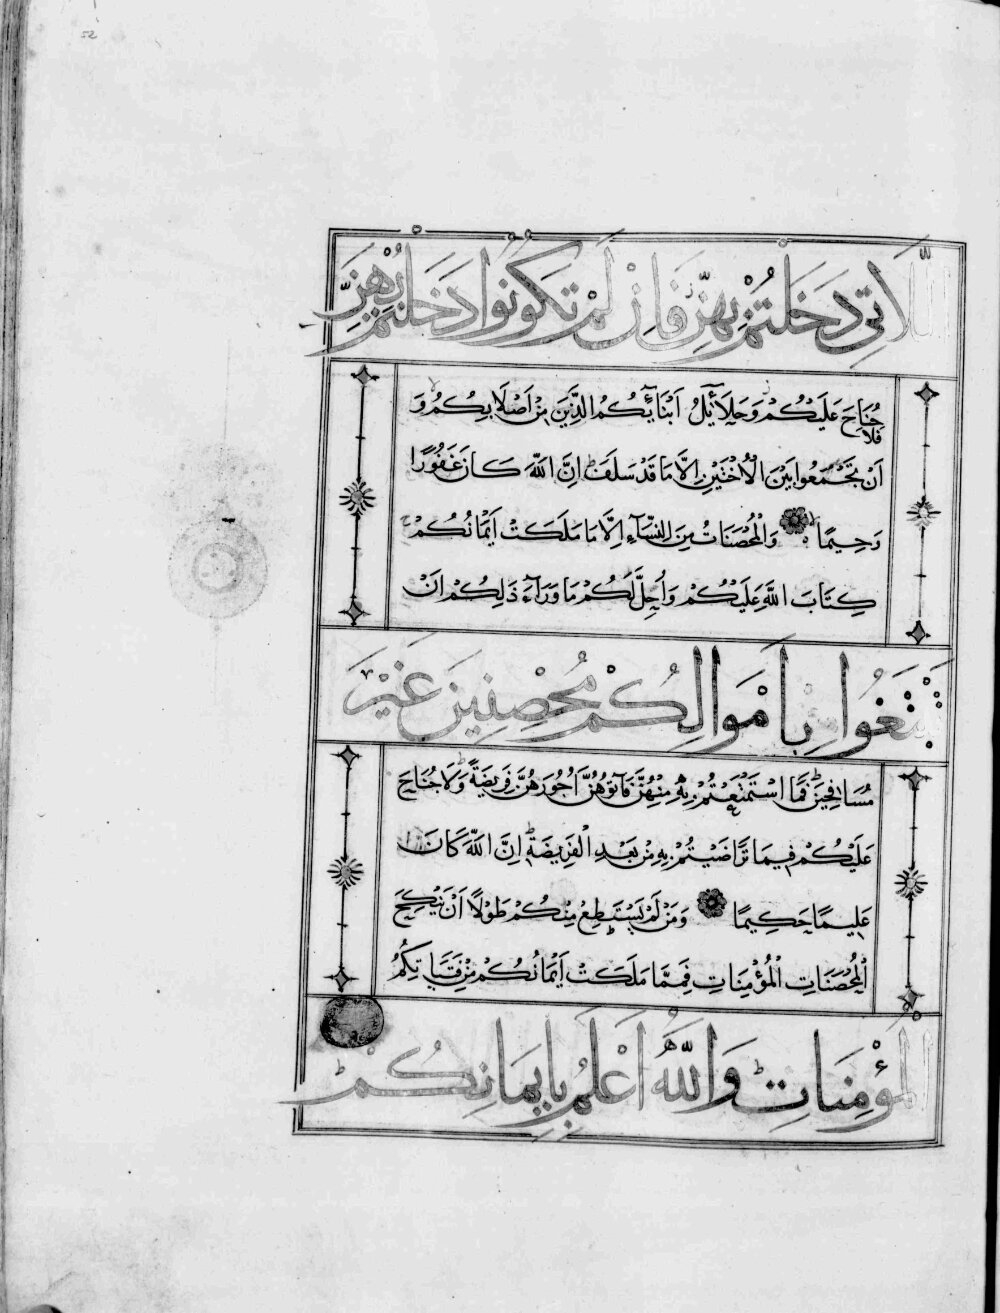 52
اللَّاتِي دَخَلْتُمْ بِهِنَّ فَإِنْ لَمْ تَكُونُوا دَخَلْتُمْ بِهِنَّ
فَلَا جُنَاحَ عَلَيْكُمْ وَحَلَآئِلُ أَبْنَآئِكُمُ الَّذِينَ مِنْ أَصْلَابِكُمْ وَ
اَنْ تَجْمَعُوا بَيْنَ الْأُخْتَيْنِ إِلَّا مَا قَدْ سَلَفَ اِنَّ اللَّهَ كَانَ غَفُورًا
رَحِيمًا وَالْمُحْصَنَاتُ مِنَ النِّسَآءِ اِلَّا مَا مَلَكَتْ اَيْمَانُكُمْ
كِتَابَ اللَّهِ عَلَيْكُمْ وَاُحِلَّ لَكُمْ مَا وَرَآءَ ذَلِكُمْ اَنْ
تَبْتَغُوا بِأَمْوَالِكُمْ مُحْصِنِينَ غَيْرَ
مُسَافِحِينَ فَمَا اسْتَمْتَعْتُمْ بِهِ مِنْهُنَّ فَآتُوهُنَّ اُجُورَهُنَّ فَرِيضَةً وَلَا جُنَاحَ
عَلَيْكُمْ فِيمَا تَرَاضَيْتُمْ بِهِ مِنْ بَعْدِ الْفَرِيضَةِ اِنَّ اللَّهَ كَانَ
عَلِيمًا حَكِيمًا وَمَنْ لَمْ يَسْتَطِعْ مِنْكُمْ طَوْلًا اَنْ يَنْكِحَ
الْمُحْصَنَاتِ الْمُؤْمِنَاتِ فَمِمَّا مَلَكَتْ اَيْمَانُكُمْ مِنْ فَتَيَاتِكُمُ
الْمُؤْمِنَاتِ وَاللَّهُ اَعْلَمُ بِإِيمَانِكُمْ